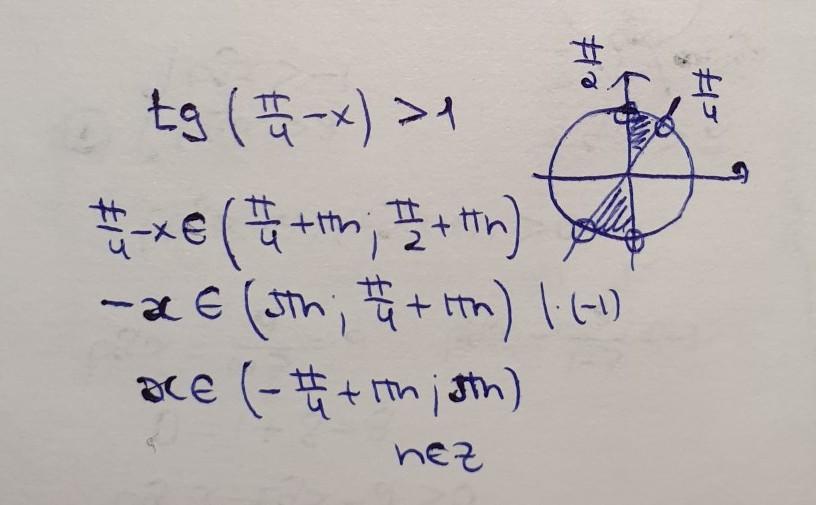 tg (π/4 - x) > 1
π/2
π/4
π/4 - x ∈ (π/4 + πn ; π/2 + πn)
-x ∈ (πn ; π/4 + πn) | · (-1)
x ∈ (- π/4 + πn ; πn)
n ∈ Z